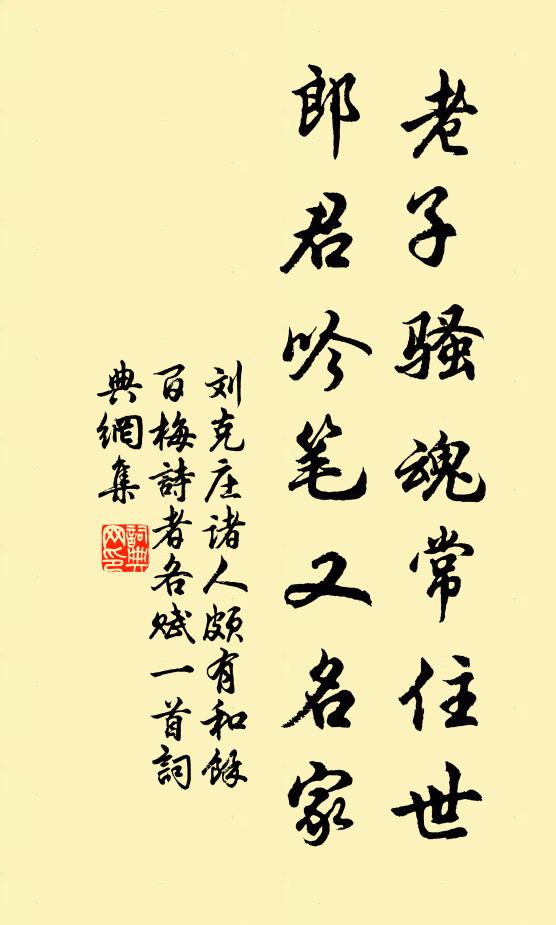 老子骚魂常住世
郎君吟笔又名家
刘克庄诸人颇有和馀
百梅詩者各赋一首詞
典網集
詞典
网印